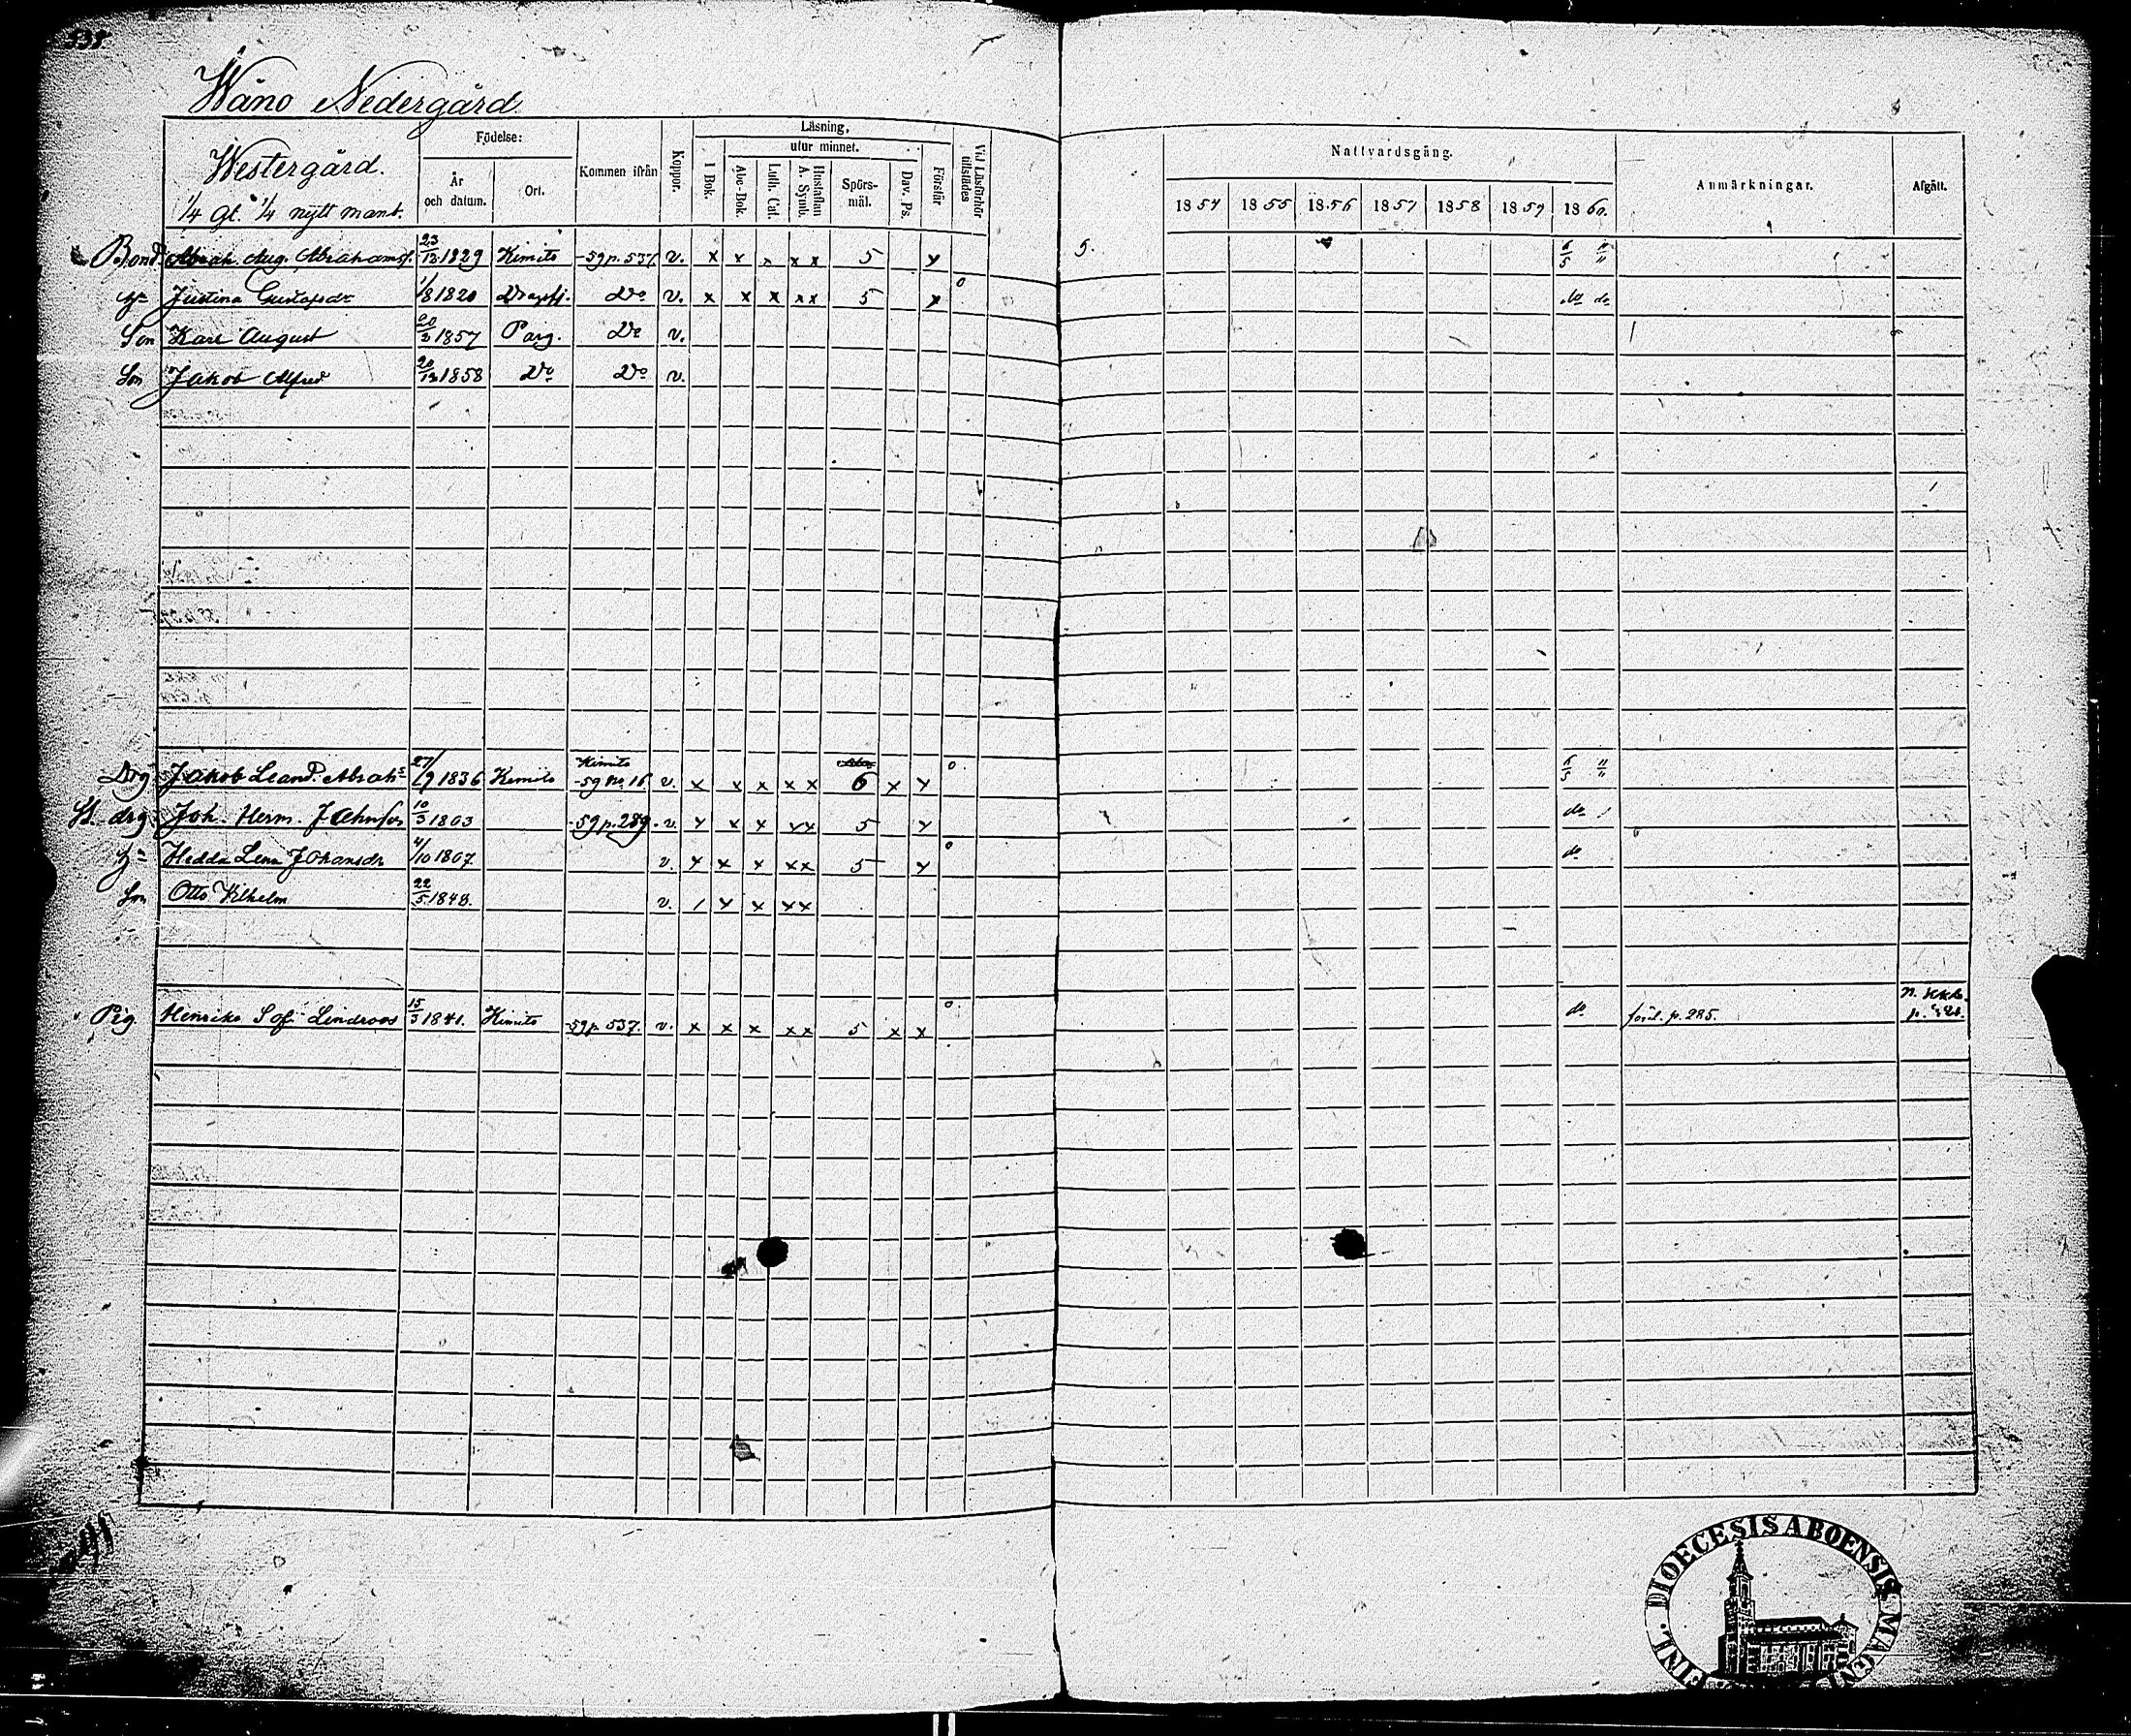 535.
Wäno Nedergård.
Westergård.
1/4 gl. 1/4 nytt mant.
Födelse:
År och datum.
Ort.
Kommen ifrån
Koppor.
Läsning,
I Bok.
utur minnet.
Abc-Bok.
Luth. Cat.
Hustaflan A. Symb.
Spörs-mål.
Dav. Ps.
Förstår
Vid Läsförhör tillstädes
Nattvardsgång.
1854 1855 1856 1857 1858 1859 1860.
Anmärkningar.
Afgått.
Bond. Abrah. Aug. Abrahamss. 23/12 1829 Kimito -59 p. 537. v. x x x x x 5 x 5. 6/5 "/"
h:u Justina Gustafsdr 1/8 1820 Dragsfj. Do v. x x x x x 5 x 0 do do
Son Karl August 1857 Parg. Do v.
Son Jakob Alfred 20/12 1858 Do Do v.
Drg Jakob Leand. Abrahs 27/9 1836 Kimito Kimito -59 No. 16. v. x x x x x 6 x x 0. 6/5 "/"
St. drg Joh. Herm. Johnson 10/3 1803 -59 p. 289. v. x x x x x 5 x do
h:u Hedda Lena Johansdr 4/10 1807. v. x x x x x 5 x 0 do
Son Otto Vilhelm 22/5 1848. v. / x x x x
Pig. Henrika Sof. Lindroos 15/3 1841. Kimito -59 p. 537. v. x x x x x 5 x x 0. do föräl. p. 285. n. Kkb.
DIOECESIS ABOENSIS